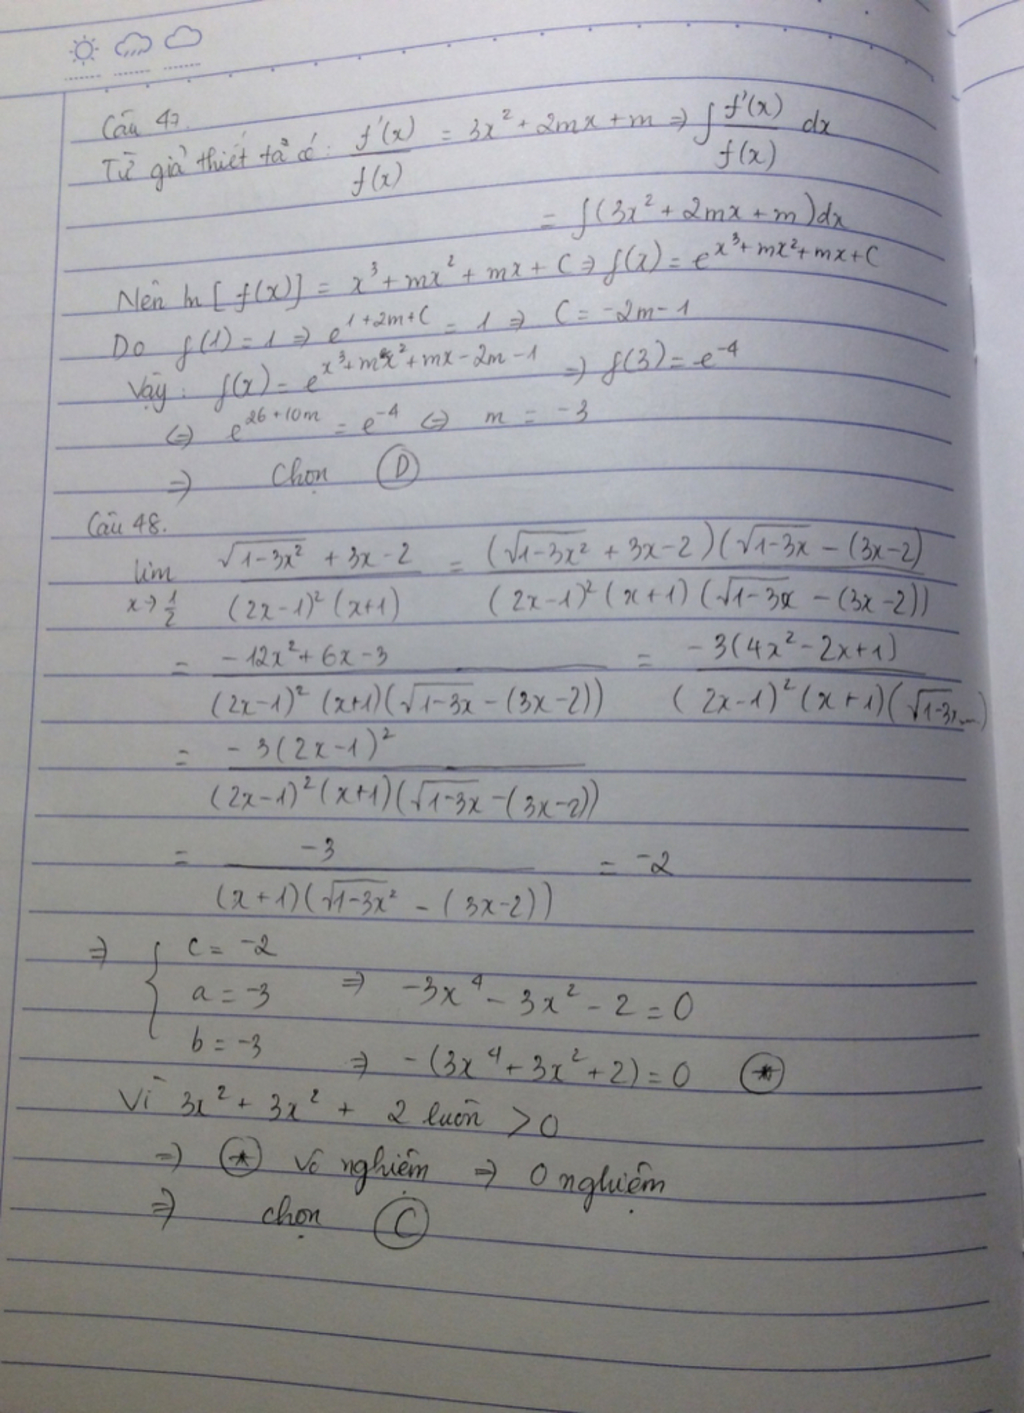 Câu 47.
Từ giả thiết ta có: f'(x)/f(x) = 3x² + 2mx + m ⇒ ∫ f'(x)/f(x) dx
= ∫(3x² + 2mx + m)dx
Nên ln [f(x)] = x³ + mx² + mx + C ⇒ f(x) = e^(x³ + mx² + mx + C)
Do f(1) = 1 ⇒ e^(1+2m+C) = 1 ⇒ C = -2m - 1
Vậy: f(x) = e^(x³ + mx² + mx - 2m - 1) ⇒ f(3) = e^(-4)
⇔ e^(26+10m) = e^(-4) ⇔ m = -3
⇒ Chọn Ⓓ
Câu 48.
lim x→1/2 (√(1-3x²) + 3x - 2)/((2x-1)² (x+1)) = ((√(1-3x²) + 3x - 2)(√(1-3x) - (3x-2))/((2x-1)² (x+1)(√(1-3x) - (3x-2)))
= (-12x² + 6x - 3)/((2x-1)² (x+1)(√(1-3x) - (3x-2))) = (-3(4x² - 2x + 1))/((2x-1)² (x+1)(√(1-3x)...)
= (-3(2x-1)²)/((2x-1)² (x+1)(√(1-3x) - (3x-2)))
= (-3)/((x+1)(√(1-3x²) - (3x-2))) = -2
⇒ { c = -2
a = -3 ⇒ -3x⁴ - 3x² - 2 = 0
b = -3 ⇒ -(3x⁴ + 3x² + 2) = 0 (*)
Vì 3x² + 3x² + 2 luôn > 0
⇒ (*) vô nghiệm ⇒ 0 nghiệm
⇒ chọn Ⓒ